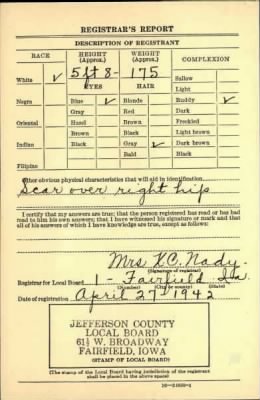 REGISTRAR'S REPORT
DESCRIPTION OF REGISTRANT
RACE HEIGHT (Approx.) WEIGHT (Approx.) COMPLEXION
5 ft 8- 175
White ✓ EYES HAIR Sallow
Light
Negro Blue ✓ Blonde Ruddy ✓
Gray Red Dark
Oriental Hazel Brown Freckled
Brown Black Light brown
Indian Black Gray ✓ Dark brown
Bald Black
Filipino
Other obvious physical characteristics that will aid in identification
Scar over right hip
I certify that my answers are true; that the person registered has read or has had
read to him his own answers; that I have witnessed his signature or mark and that
all of his answers of which I have knowledge are true, except as follows:
Mrs K.C. Nady
(Signature of registrar)
Registrar for Local Board 1 - Fairfield Ia.
(Number) (City or county) (State)
Date of registration April 27 1942
JEFFERSON COUNTY
LOCAL BOARD
61½ W. BROADWAY
FAIRFIELD, IOWA
(STAMP OF LOCAL BOARD)
(The stamp of the Local Board having jurisdiction of the registrant
shall be placed in the above space)